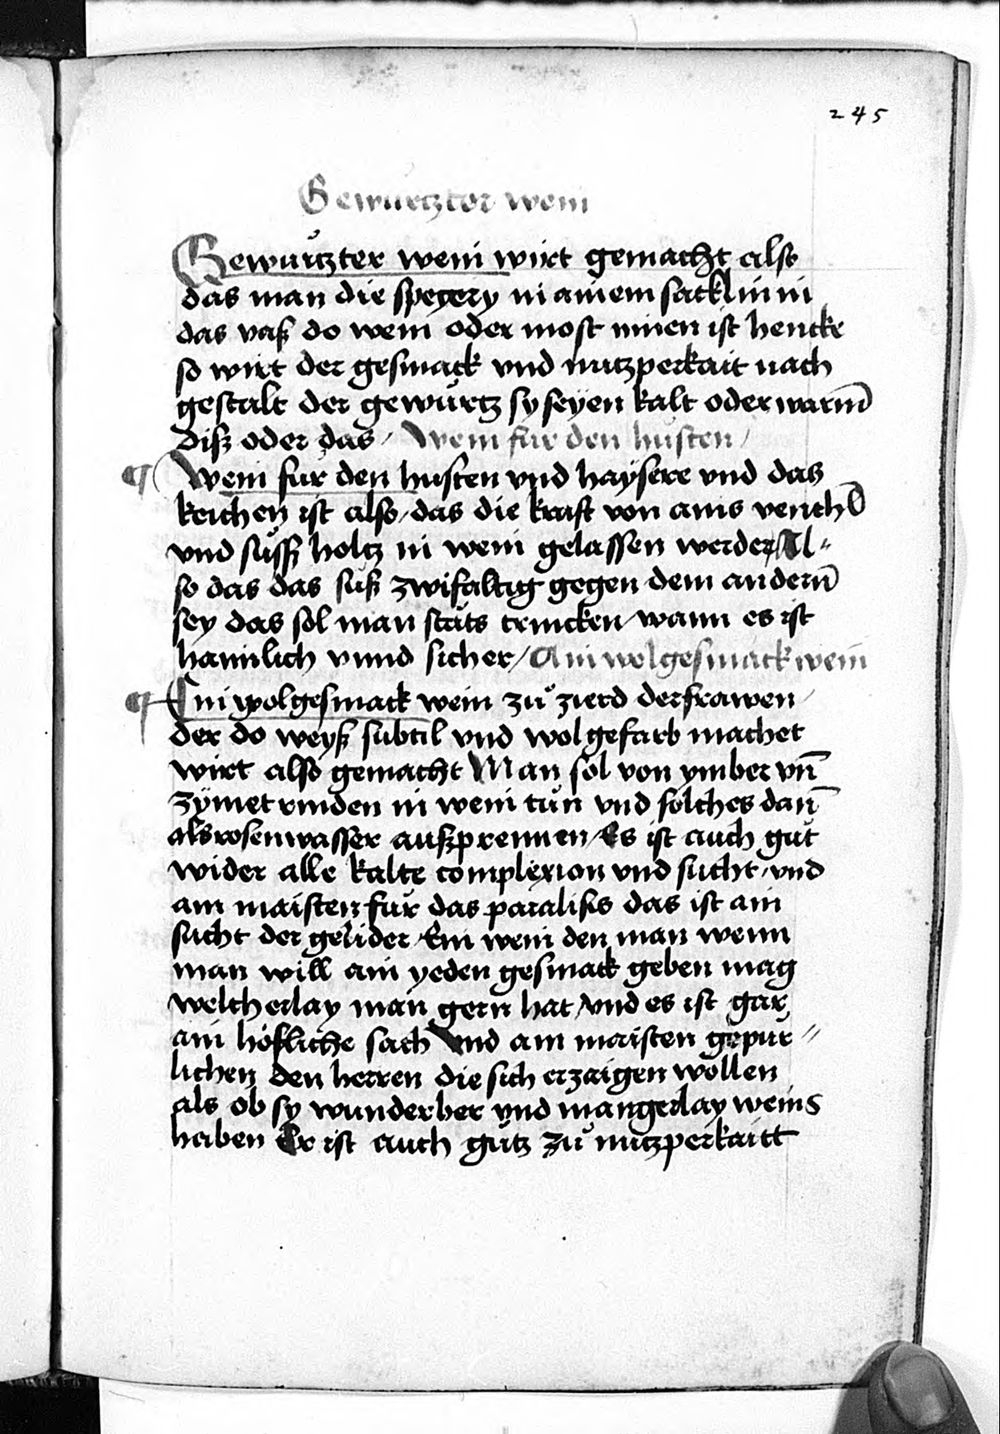 245
Gewurtzter wein
Gewurtzter wein wirt gemacht also
das man die spetzery in ainem sacklin in
das vaß do wein oder most innen ist hencke
so wirt der gesmack vnd nutzperkait nach
gestalt der gewürtz sy seyen kalt oder warm̄
diß oder das / Wein für den husten /
¶ Wein für den husten vnd haysere vnd das
keichen ist also / das die kraft von anis venchl̄
vnd süssz holtz in wein gelassen werden Al-
so das das süß zwifaltig gegen dem andern̄
sey das sol man stäts trincken / wann es ist
haimlich vnnd sicher / Ain wolgesmack wein
¶ Ein wolgesmack wein zů zierd der frawen /
der do weyß subtil vnd wolgefarb machet
wirt also gemacht Man sol von ymber vn̄
zymet rinden in wein tůn vnd solches dan̄
als rosenwasser außprennen / Es ist auch gůt
wider alle kalte complexion vnd sucht / vnd
am maisten für das paralisis das ist ain
sucht der gelider / Ein wein den man wenn
man will ain yeden gesmack geben mag
welcherlay man gern hat / vnd es ist gar
ain höfliche sach Vnd am maisten gepür-
lichen den herren die sich erzaigen wöllen
als ob sy wunderber vnd mangerlay weins
haben Er ist auch gůtz zů nutzperkaitt